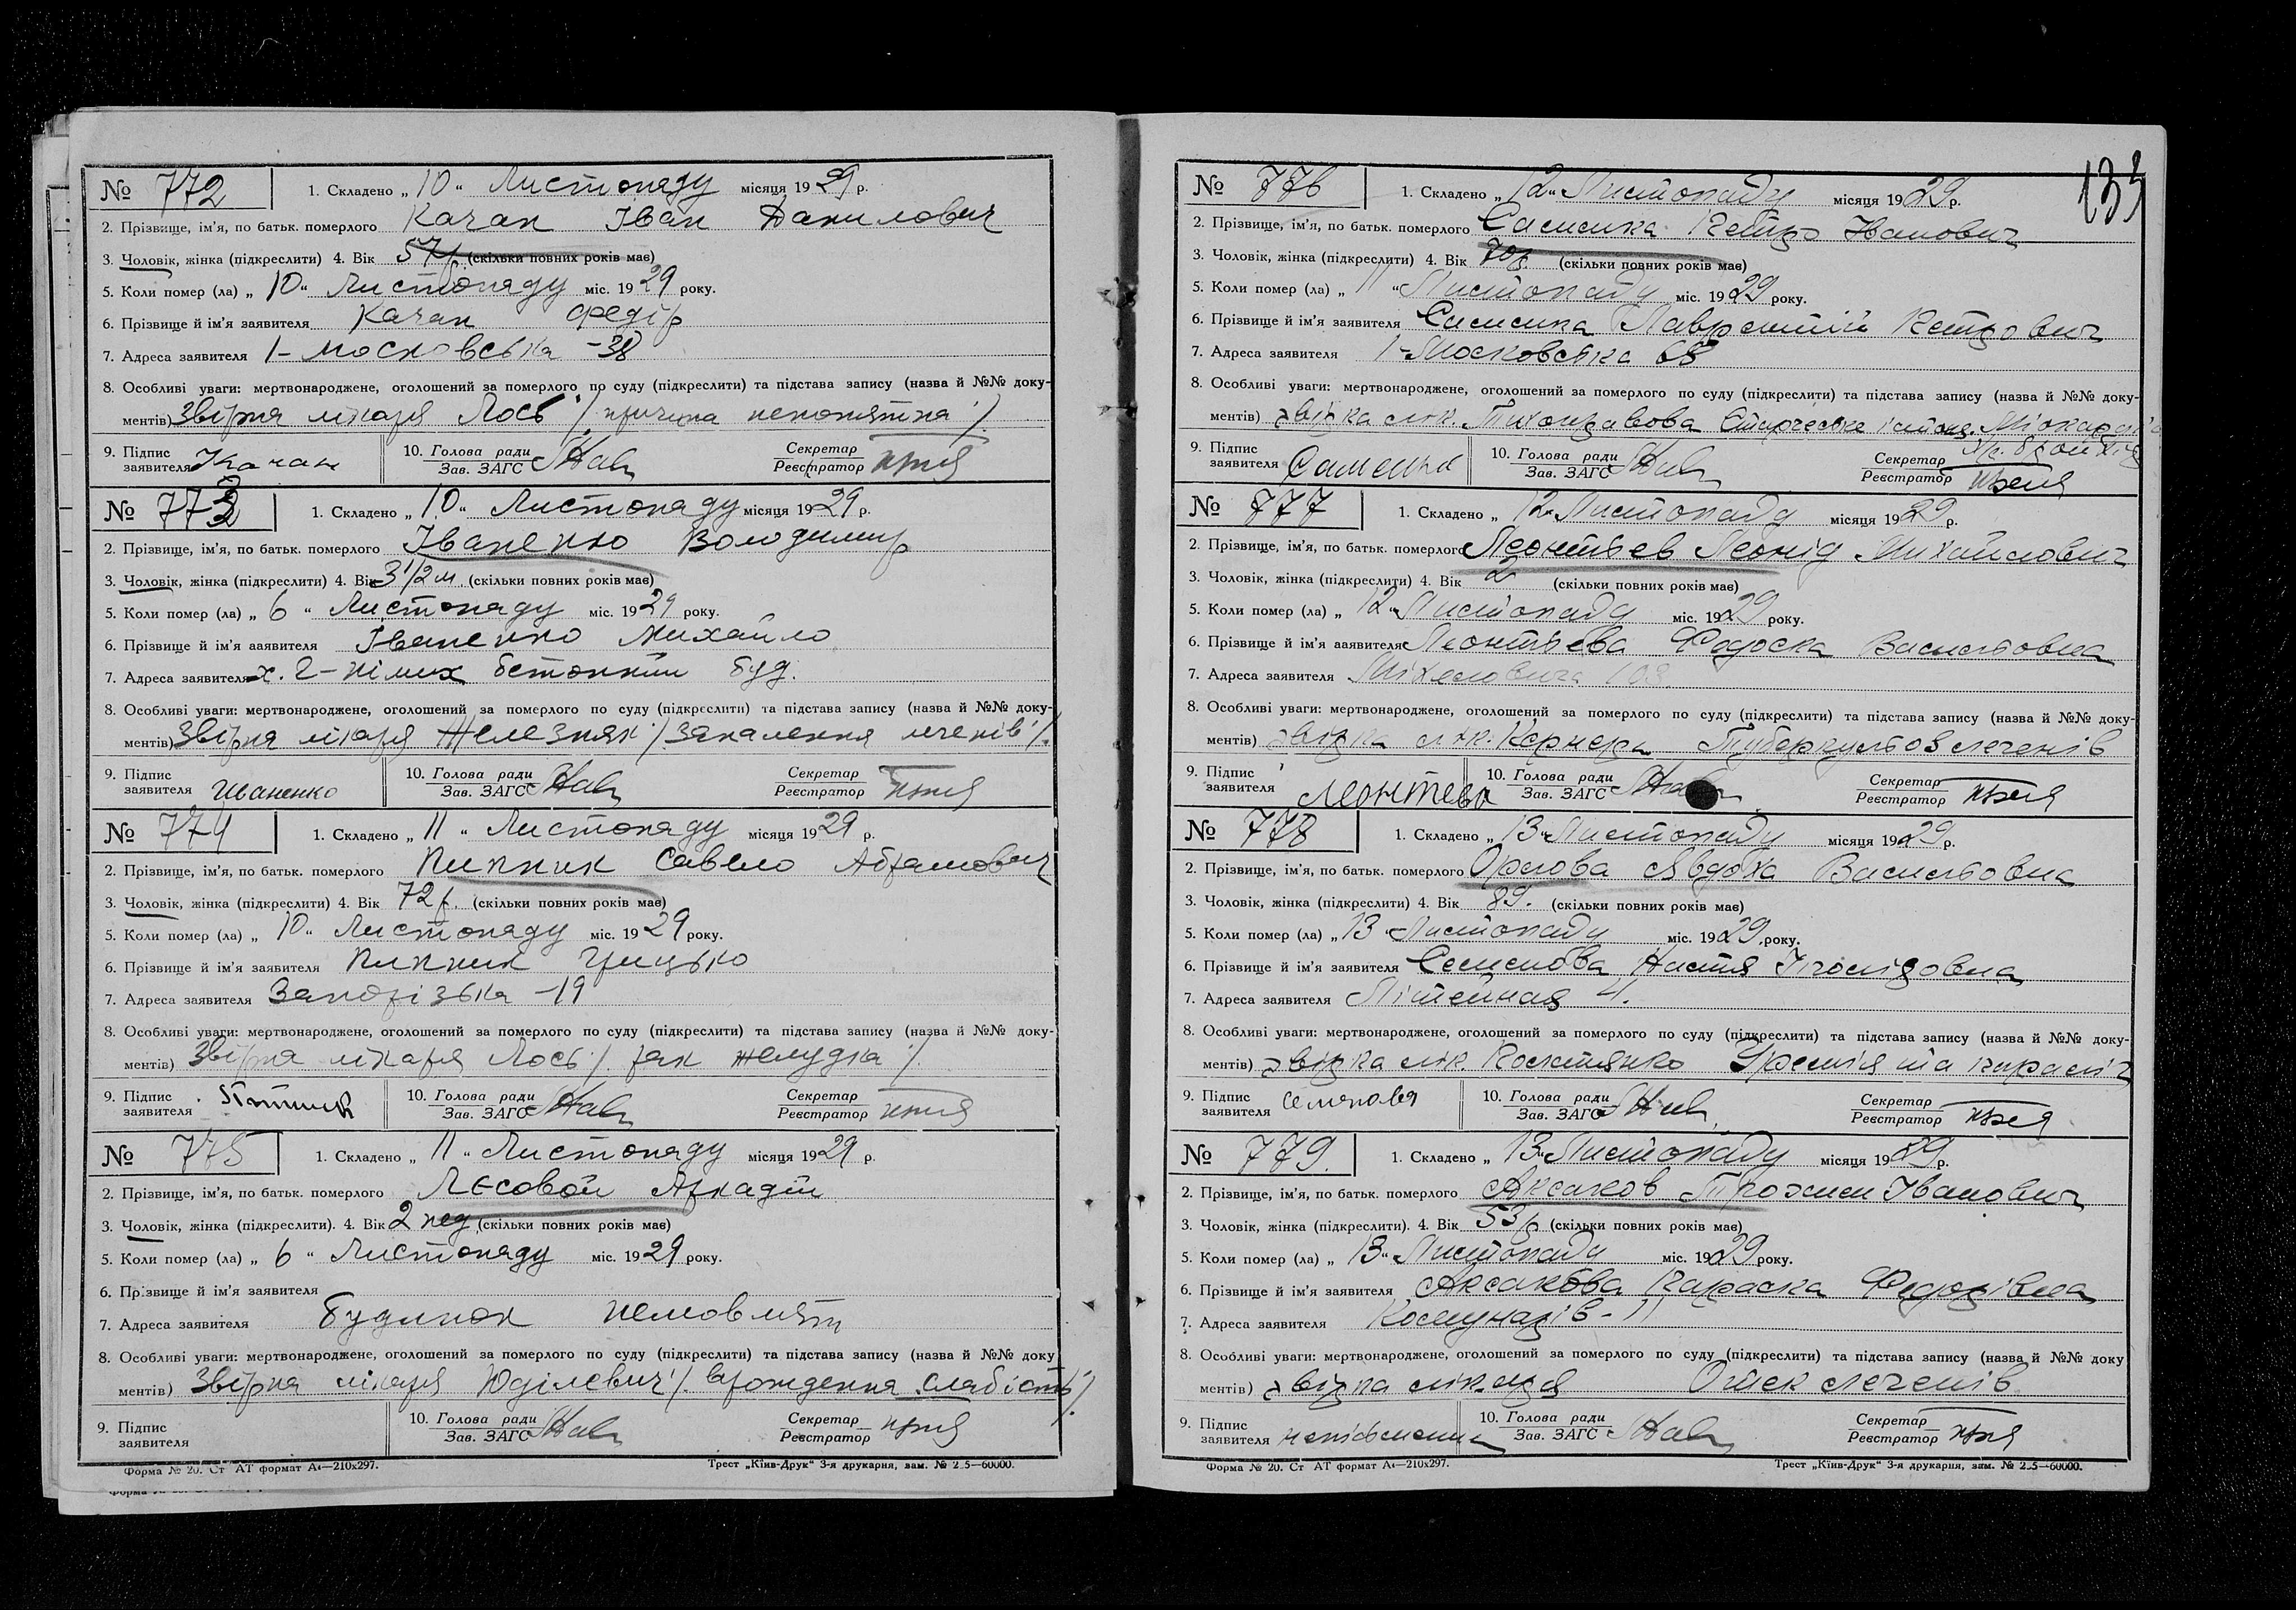 № 772 1. Складено „ 10 “ Листопаду місяця 1929 р.
2. Прізвище, ім'я, по батьк. померлого Качан Іван Данилович
3. Чоловік, жінка (підкреслити) 4. Вік 57 р. (скільки повних років має)
5. Коли помер (ла) „ 10 “ Листопаду міс. 1929 року.
6. Прізвище й ім'я заявителя Качан Федір
7. Адреса заявителя 1-Московська -38
8. Особливі уваги: мертвонароджене, оголошений за померлого по суду (підкреслити) та підстава запису (назва й №№ доку-
ментів) Звірка лікаря Лось /причина непонятна/.
9. Підпис заявителя Качан 10. Голова ради Зав. ЗАГС Секретар Реєстратор
№ 773 1. Складено „ 10 “ Листопаду місяця 1929 р.
2. Прізвище, ім'я, по батьк. померлого Іваненко Володимир
3. Чоловік, жінка (підкреслити) 4. Вік 3 1/2 м. (скільки повних років має)
5. Коли помер (ла) „ 6 “ Листопаду міс. 1929 року.
6. Прізвище й ім'я заявителя Іваненко Михайло
7. Адреса заявителя буд.
8. Особливі уваги: мертвонароджене, оголошений за померлого по суду (підкреслити) та підстава запису (назва й №№ доку-
ментів) Звірка лікаря Железняк /запалення легенів/.
9. Підпис заявителя Иваненко 10. Голова ради Зав. ЗАГС Секретар Реєстратор
№ 774 1. Складено „ 11 “ Листопаду місяця 1929 р.
2. Прізвище, ім'я, по батьк. померлого Пипник Савело Абрамович
3. Чоловік, жінка (підкреслити) 4. Вік 72 р. (скільки повних років має)
5. Коли помер (ла) „ 10 “ Листопаду міс. 1929 року.
6. Прізвище й ім'я заявителя Пипник Грицько
7. Адреса заявителя Запорізька -19
8. Особливі уваги: мертвонароджене, оголошений за померлого по суду (підкреслити) та підстава запису (назва й №№ доку-
ментів) Звірка лікаря Лось /. рак желудка /.
9. Підпис заявителя 10. Голова ради Зав. ЗАГС Секретар Реєстратор
№ 775 1. Складено „ 11 “ Листопаду місяця 1929 р.
2. Прізвище, ім'я, по батьк. померлого Лєсовой Аркадій
3. Чоловік, жінка (підкреслити). 4. Вік 2 нед. (скільки повних років має)
5. Коли помер (ла) „ 6 “ Листопаду міс. 1929 року.
6. Прізвище й ім'я заявителя
7. Адреса заявителя Будинок немовлят
8. Особливі уваги: мертвонароджене, оголошений за померлого по суду (підкреслити) та підстава запису (назва й №№ доку
ментів) Звірка лікаря Юділевич /. врождення слабість /.
9. Підпис заявителя 10. Голова ради Зав. ЗАГС Секретар Реєстратор
Форма № 20. Ст АТ формат А4—210х297. Трест „Київ-Друк“ 3-я друкарня, зам. № 2.5—60000.
№ 776 1. Складено „ 12 “ Листопаду місяця 1929 р.
2. Прізвище, ім'я, по батьк. померлого Саменка Петро Іванович
3. Чоловік, жінка (підкреслити) 4. Вік 70 р. (скільки повних років має)
5. Коли помер (ла) „ 11 “ Листопаду міс. 1929 року.
6. Прізвище й ім'я заявителя Саменка Лаврентій Петрович
7. Адреса заявителя 1-Московська 68
8. Особливі уваги: мертвонароджене, оголошений за померлого по суду (підкреслити) та підстава запису (назва й №№ доку-
ментів) звірка лік. Тихонравова
9. Підпис заявителя 10. Голова ради Зав. ЗАГС Секретар Реєстратор
№ 777 1. Складено „ 12 “ Листопаду місяця 1929 р.
2. Прізвище, ім'я, по батьк. померлого Леонтьев Леонід Михайлович
3. Чоловік, жінка (підкреслити) 4. Вік 2 (скільки повних років має)
5. Коли помер (ла) „ 12 “ Листопаду міс. 1929 року.
6. Прізвище й ім'я заявителя Леонтьева Федоска Васильовна
7. Адреса заявителя 103
8. Особливі уваги: мертвонароджене, оголошений за померлого по суду (підкреслити) та підстава запису (назва й №№ доку-
ментів) звірка лік. Кернера Туберкульоз легенів
9. Підпис заявителя 10. Голова ради Зав. ЗАГС Секретар Реєстратор
№ 778 1. Складено „ 13 “ Листопаду місяця 1929 р.
2. Прізвище, ім'я, по батьк. померлого Орлова Явдоха Васильовна
3. Чоловік, жінка (підкреслити) 4. Вік 89. (скільки повних років має)
5. Коли помер (ла) „ 13 “ Листопаду міс. 1929 року.
6. Прізвище й ім'я заявителя Семенова Настя
7. Адреса заявителя Літейная 4.
8. Особливі уваги: мертвонароджене, оголошений за померлого по суду (підкреслити) та підстава запису (назва й №№ доку-
ментів) звірка лік. Уремія та параліч
9. Підпис заявителя 10. Голова ради Зав. ЗАГС Секретар Реєстратор
№ 779. 1. Складено „ 13 “ Листопаду місяця 1929 р.
2. Прізвище, ім'я, по батьк. померлого Аксаков Трохим Іванович
3. Чоловік, жінка (підкреслити). 4. Вік 53 р. (скільки повних років має)
5. Коли помер (ла) „ 13 “ Листопаду міс. 1929 року.
6. Прізвище й ім'я заявителя Аксакова Параска Федорівна
7. Адреса заявителя Комунарів - 11
8. Особливі уваги: мертвонароджене, оголошений за померлого по суду (підкреслити) та підстава запису (назва й №№ доку
ментів) звірка Отёк легенів
9. Підпис заявителя неписьменна 10. Голова ради Зав. ЗАГС Секретар Реєстратор
Форма № 20. Ст АТ формат А4—210х297. Трест „Київ-Друк“ 3-я друкарня, зам. № 2.5—60000.